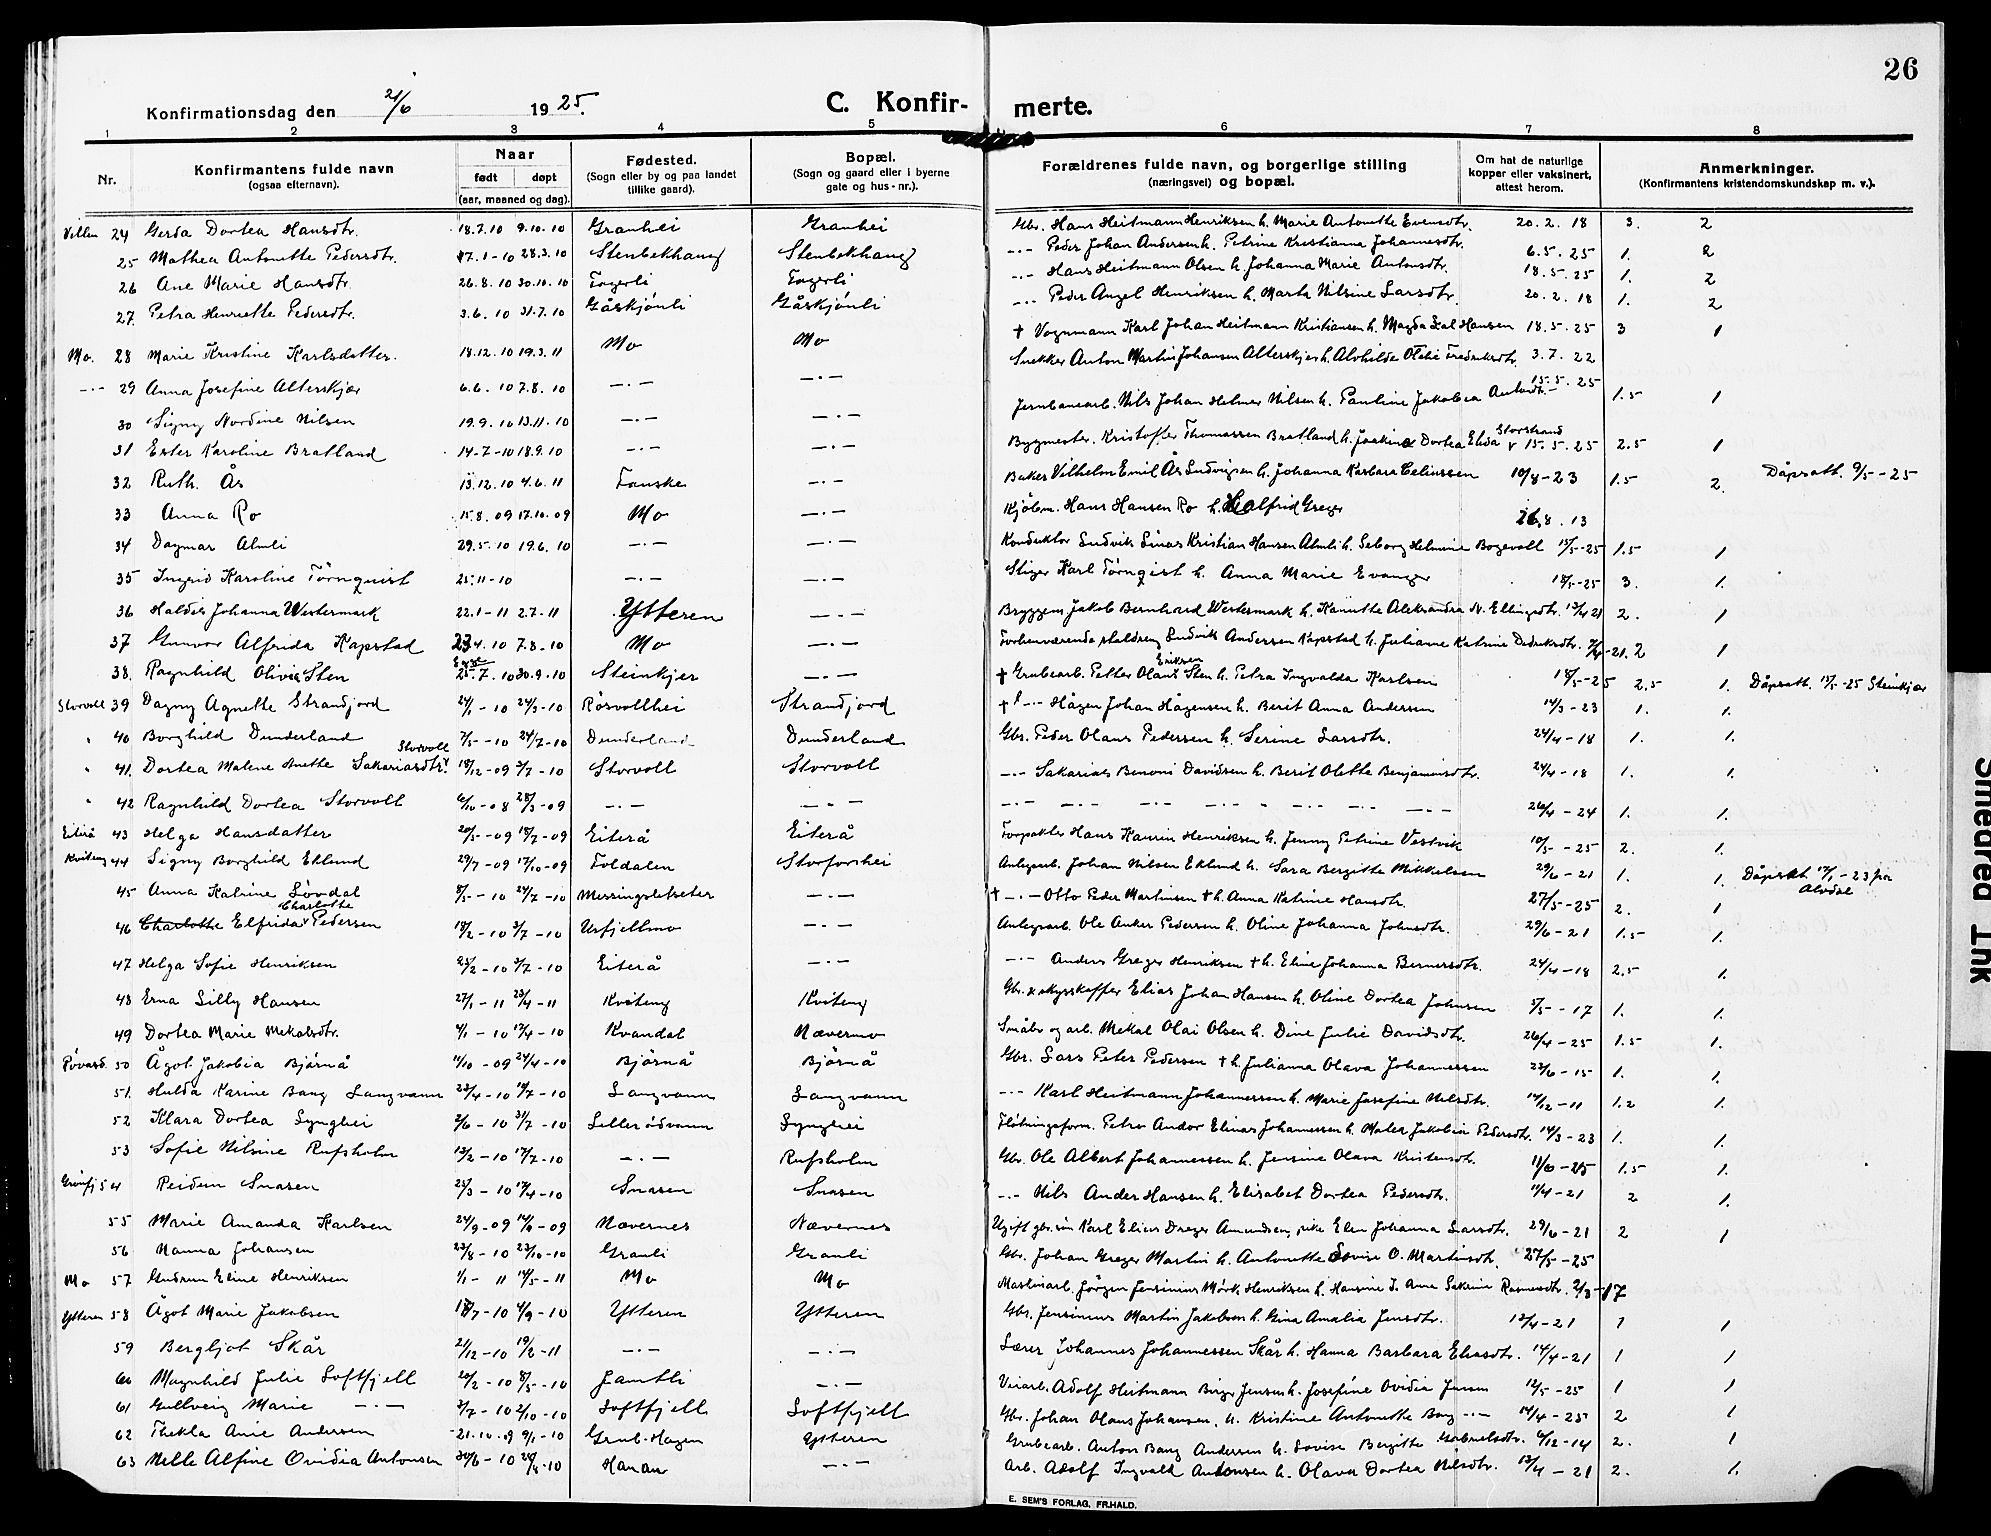 26
Konfirmationsdag den 21/6 1925. C. Konfir- merte.
1 2 3 4 5 6 7 8
Nr. Konfirmantens fulde navn (ogsaa efternavn). Naar født døpt (aar, maaned og dag). Fødested. (Sogn eller by og paa landet tillike gaard). Bopæl. (Sogn og gaard eller i byerne gate og hus-nr.). Forældrenes fulde navn, og borgerlige stilling (næringsvei) og bopæl. Om hat de naturlige kopper eller vaksinert, attest herom. Anmerkninger. (Konfirmantens kristendomskundskap m. v.).
24 Gerda Dortea Hansdtr. 18.7.10 9.10.10 Granhei Granhei Gbr. Hans Heitmann Henriksen h. Marie Antonette Evensdtr. 20.2.18 3. 2
25 Mathea Antonette Pedersdtr. 17.1-10 28.3.10 Stenbekhaug Stenbekhaug -·- Peder Johan Andersen h. Petrine Kristianna Johannesdtr. 6.5.25 1. 2
26 Ane Marie Hansdtr. 26.8.10 30.10.10 Fagerli Fagerli -·- Hans Heitmann Olsen h. Johanna Marie Antonsdtr. 18.5.25 1. 2
27. Petra Henriette Pedersdtr. 3.6.10 31.7.10 Gåskjønli Gåskjønli -·- Peder Angel Henriksen h. Marta Nilsine Larsdtr. 20.2.18 1. 2
Mo. 28 Marie Kristine Karlsdatter. 18.12.10 19.3.11 Mo Mo † Vognmann Karl Johan Heitmann Kristiansen h. Magda Hansen 18.5.25 3 1
-·- 29 Anna Josefine Alterskjær 6.6.10 7.8.10 -·- -·- Snekker Anton Martin Johansen Alterskjær h. Alvhilde Otelie Fredriksdtr. 3.7.22
30 Signy Nordine Nilsen 19.9.10 13.11.10 -·- -·- Jernbanearb. Nils Johan Helmer Nilsen h. Pauline Jakobea Antondtr. 15.5.25 1.5 1
31 Ester Karoline Bratland 14-7-10 18.9.10 -·- -·- Bygmester. Kristofer Thomassen Bratland h. Joakine Dortea Elisa Storstrand 15.5.25 2.5 1
32 Ruth. Ås 13.12.10 4.6.11 Fauske -·- Baker Vilhelm Emil Ås Ludvigsen h. Johanna Barbara Celiussen 10/8-23 1.5 2. Dåpsatt. 9/5-25
33 Anna Ro 15.8.09 17.10.09 Mo -·- Kjøbm. Hans Hansen Ro h. Halfrid Greger 26.8.13
34 Dagmar Almli 29.5.10 19.6.10 -·- -·- Konduktør Ludvik Linas Kristian Hansen Almli h. Seborg Helmine Bogevoll 15/5-25 1.5 1
35 Ingrid Karoline Törnquist 25-11-10 -·- -·- Stiger Karl Törnqist h. Anna Marie Evanger 18/5-25 3. 1.
36 Haldis Johanna Westermark 22.1-11 2.7-11 Ytteren -·- Bryggem. Jakob Bernhard Westermark h. Hanutte Aleksandra N. Ellingsdtr. 2. 1
37 Gunvor Alfrida Kapstad 23.4.10 7.8-10 Mo -·- Forhenværende staldreng Ludvik Andersen Kapstad h. Juliane Katrine Didriksdtr. -21. 2 1
38. Ragnhild Olivia Sten 25.7.10 30.9.10 Steinkjer -·- † Grubearb. Petter Olaus Eriksen Sten h. Petra Ingvalda Karlsen 18/5-25 2.5 1. Dåpsatt. 15/5-25 Steinkjær
Storvoll 39 Dagny Agnette Strandjord 24/1-10 24/3-10 Rösvollhei Strandjord † -·- Hågen Johan Hågensen h. Berit Anna Andersen 14/3-23 1. 1.
" 40 Borghild Dunderland 7/5-10 24/7-10 Dunderland Dunderland Gbr. Peder Olaus Pedersen h. Serine Larsdtr. 24/4-18 1. 1.
" 41. Dortea Malene Anette Sakariasdtr. Storvoll 18/12-09 3/7-10 Storvoll Storvoll -·- Sakarias Benoni Davidsen h. Berit Olette Benjaminsdtr. 24/4-18 1. 1.
" 42 Ragnhild Dortea Storvoll 6/10-08 28/3-09 -·- -·- -·- -·- -·- -·- -·- -·- -·- 26/4-24 1. 1.
Eiterå 43 Helga Hansdatter 20/5-09 18/7-09 Eiterå Eiterå Forpakter Hans Kaurin Henriksen h. Jenny Petrine Vestvik 10/5-25 2. 1.
Kviteng 44 Signy Borghild Eklund 29/7-09 17/10-09 Foldalen Storforshei Anlegsarb. Johan Nilsen Eklund h. Sara Bergitte Mikkelsen 29/6-21 1. 1. Dåpsatt 17/1-23 fra Alvdal
45 Anna Katrine Lövdal 8/5-10 24/7-10 Messingsletseter -·- † -·- Otto Peder Martinsen † h. Anna Katrine Hansdtr. 27/5-25 2. 1
46 Charlotte Elfrida Charlotte Pedersen 18/2-10 3/7-10 Urfjellmo -·- Anlegsarb. Ole Anker Pedersen h. Oline Johanna Johnsdtr. 29/6-21 1.5 1.
47 Helga Sofie Henriksen 25/2-10 3/7-10 Eiterå -·- -·- Anders Greger Henriksen † h. Eline Johanna Bernersdtr. 24/4-18 2.5 1.
48 Erna Lilly Hansen 27/1-11 23/4-11 Kviteng Kviteng Gbr. & skysskaffer Elias Johan Hansen h. Oline Dortea Johnsen 5/5-17 1. 1.
49 Dortea Marie Mekalsdtr. 4/1-10 17/4-10 Kvandal Nævermo Småbr og arb. Mekal Olai Olsen h. Dine Julie Davidsdtr. 26/4-25 1.5 1.
50 Ågot Jakobia Bjärnå 11/10-09 24/4-10 Bjärnå Bjärnå Gbr. Lars Peter Pedersen † h. Julianna Olava Johannessen 23/6-15 1. 1.
51. Hulda Karine Bang Langvann 23/4-10 10/7-10 Langvann Langvann -·- Karl Heitmann Johannessen h. Marie Josefine Nilsdtr. 14/12-11 1.2 1.
52 Klara Dortea Lynghei 2/6-10 31/7-10 Lillerödvann Lynghei Flötningsform. Petro Andor Elinas Johannessen h. Malea Jakobia Pedersdtr. 14/3-23 1. 1.
53 Sofie Nilsine Rufsholm 13/2-10 17/7-10 -·- Rufsholm Gbr. Ole Albert Johannessen h. Jensine Olava Kristensdtr. 11/6-25 1.5 1.
54 Reidun Snasen 25/3-10 17/4-10 Snasen Snasen -·- Nils Ander Hansen h. Elisabet Dortea Pedersdtr. 11/4-21 2 1.
55 Marie Amanda Karlsen 24/9-09 14/11-09 Nævernes Nævernes Ugift gbr.sön Karl Elias Dreger Amundsen, pike Elen Johanna Larsdtr. 29/6-21 2 1
56 Nanna Johansen 23/8-10 23/10-10 Granli Granli Gbr. Johan Greger Martin h. Antonette Lovise O. Martinsdt. 27/5-25
Mo 57 Gudrun Eline Henriksen 1/1-11 14/5-11 Mo Mo Maskinarb. Jörgen Jensinius Mörk Henriksen h. Hansine J. Anne Sakrine Rasmusdtr. 2/3-17
Ytteren 58 Ågot Marie Jakobsen 18/7-10 4/9-10 Ytteren Ytteren Gbr. Jensinius Martin Jakobsen h. Gina Amalia Jensdtr. 13/4-21 1 1
59 Bergljot Skår 21/12-10 19/2-11 -·- -·- Lærer Johannes Johannessen Skår h. Hanna Barbara Eliasdtr. 14/4-21 1 1
60 Magnhild Julie Loftfjell 20/2-10 8/5-10 Jamtli -·- Veiarb. Adolf Heitmann Birger Jensen h. Josefine Ovidia Jensen 12/5-25 1 1
61 Gullveig Marie -·- 3/7-10 2/10-10 Loftfjell Loftfjell Gbr. Johan Olaus Johansen, h. Kristine Antonette Bang -·- 14/4-25 2 1
62 Thekla Anie Andersen 21.10.09 9/1-10 Grub-Hagen Ytteren Grubearb. Anton Bang Andersen h. Lovise Bergitte Gabrielsdtr. 6/12-14 2. 1
63 Nelle Alfine Ovidia Antonsen 30/6-10 -10 Hanan -·- Arb. Adolf Ingvald Antonsen h. Olava Dortea Nilsdtr. 13/4-21 2. 1.
E. SEM'S FORLAG, FR.HALD.
Smeared Ink